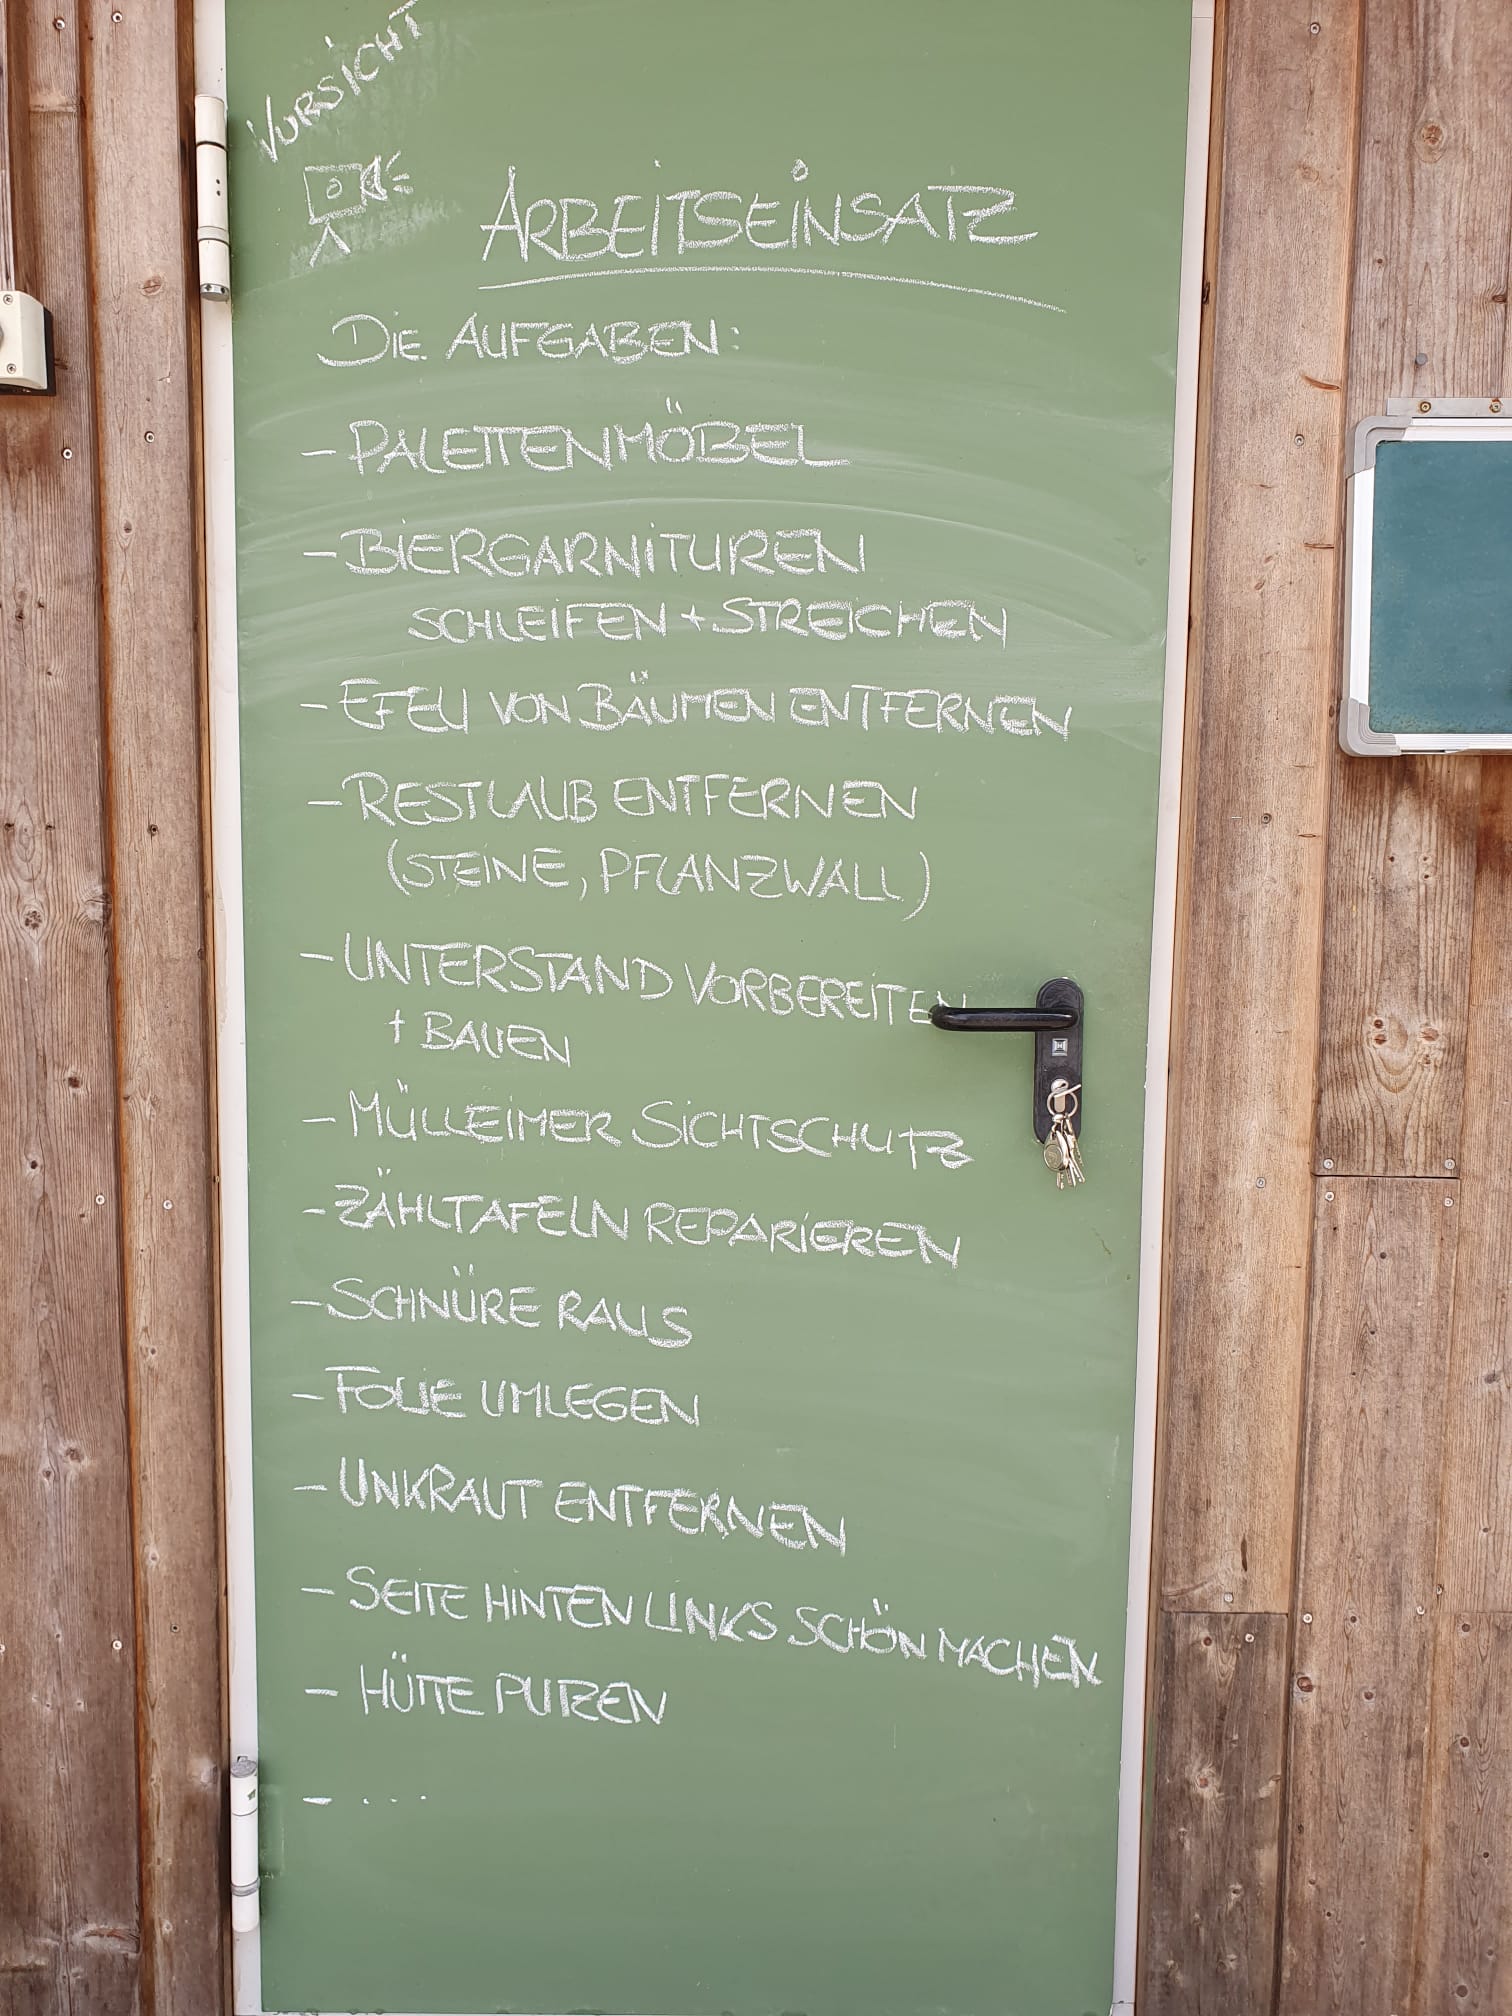 VORSICHT
ARBEITSEINSATZ
DIE AUFGABEN:
- PALETTENMÖBEL
- BIERGARNITUREN
SCHLEIFEN + STREICHEN
- EFEU VON BÄUMEN ENTFERNEN
- RESTLAUB ENTFERNEN
(STEINE, PFLANZWALL)
- UNTERSTAND VORBEREITEN
+ BAUEN
- MÜLLEIMER SICHTSCHUTZ
- ZÄHLTAFELN REPARIEREN
- SCHNÜRE RAUS
- FOLIE UMLEGEN
- UNKRAUT ENTFERNEN
- SEITE HINTEN LINKS SCHÖN MACHEN
- HÜTTE PUTZEN
- ...